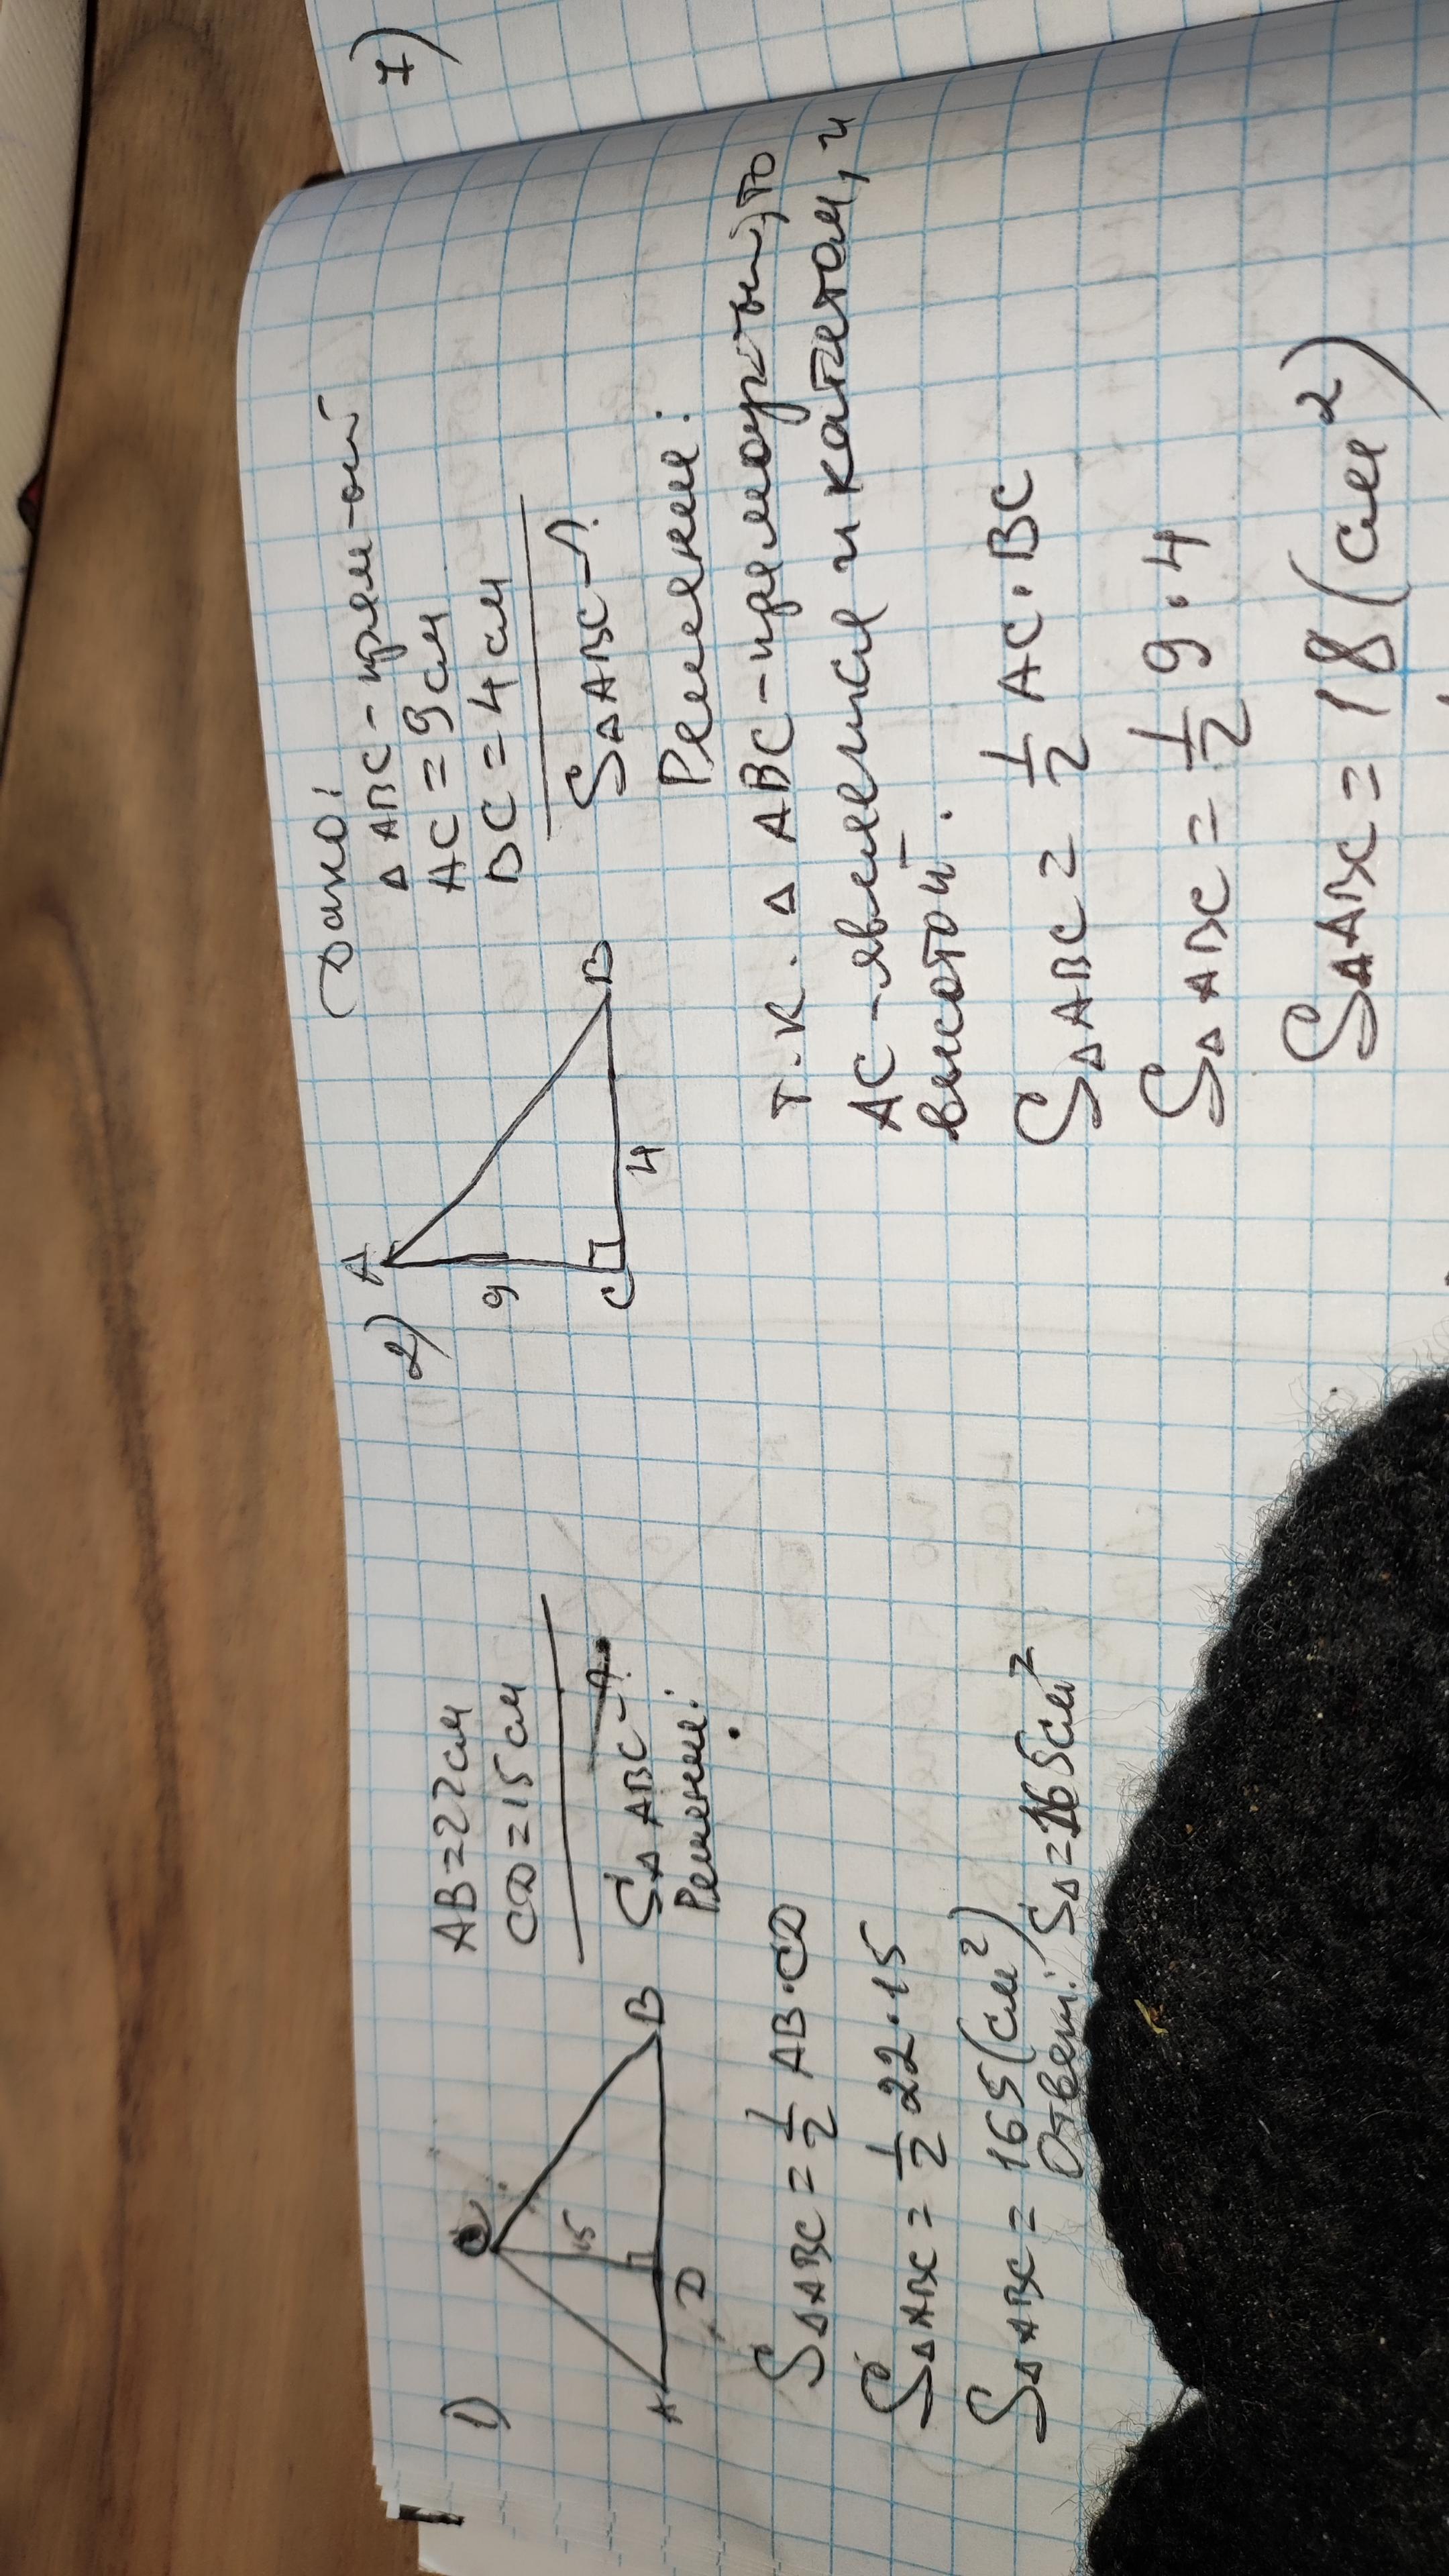 1)
C
15
A
D
B
AB=22см
CD=15см
S△ABC-?
Решение:
S△ABC = 1/2 AB·CD
S△ABC = 1/2 22·15
S△ABC = 165(см²)
Ответ: S△=165см²
2)
A
9
C
4
B
Дано:
△ABC-прям-ый
AC=9см
BC=4см
S△ABC-?
Решение:
т.к. △ABC-прямоуг-ый, то
AC-является и катетом, и
высотой.
S△ABC = 1/2 AC·BC
S△ABC = 1/2 9·4
S△ABC = 18(см²)
7)